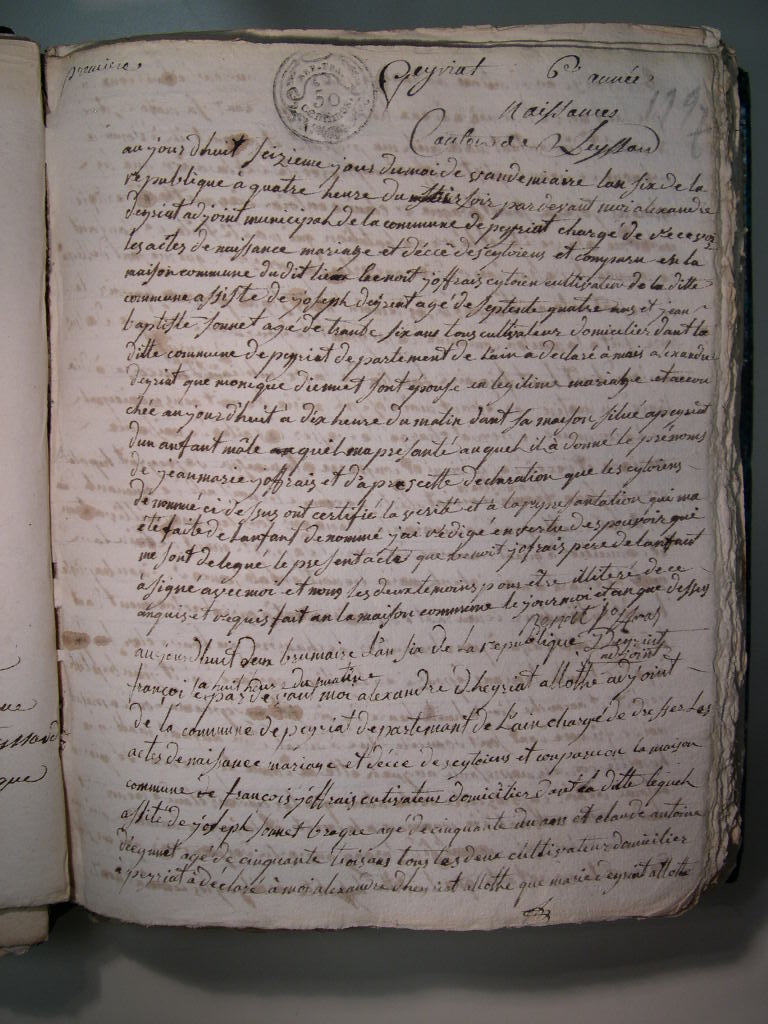 première
Peyriat 6e année
1797
naissances
Canton de Leyssard
au jourdhuit seizieme jour du moi de vandemiaire lan six de la
republique à quatre heure du soir par devant moi alexandre
deyriat adjoint municipal de la commune de peyriat chargé de recevoir
les actes de naissance mariage et décé des cytoiens et comparu en la
maison commune du dit lieu benoit joffrais cytoien cultivateur de la ditte
commune assisté de joseph deyriat agé de septente quatre ans et jean
baptiste sonnet agé de trante six ans tous cultivateur domicilier dant la
ditte commune de peyriat departement de lain à declaré à moi alexandre
deyriat que monique son épouse en legitime mariage et accou
chée au jourd'huit à dix heure du matin dant sa maison situé a peyriat
dun anfant mâle quil ma présanté auquel il à donné le prénoms
de jean marie joffrais et d'apres cette declaration que les cytoiens
denommé ci dessus ont certifié la verité et à la representation qui ma
été faite de lanfant denommé jai rédigé en vertu des pouvoir qui
me sont delegué le present acte que benoit jofrais pere de lanfant
à signé avec moi et non les deux temoins pour être illiteré de ce
anquis et requis fait an la maison commune le jour moi et an que dessus
benoit joffras
au jourdhuit deux brumaise l'an six de la republique Deyriat
adjoint
à huit heure du matin
françoi par devant moi alexandre dheyriat allothe adjoint
de la commune de peyriat departemant de l'ain chargé de dresser les
actes de naissance mariage et décé des cytoiens et comparu en la maison
commune françois joffrais cutivateur domicilier dant la ditte lequel
assité de joseph sonnet broque agé de cinquante un ans et claude antoine
agé de cinquante trois ans tous les deux cultivateur domicilier
à peyriat à déclaré à moi alexandre dheyriat allothe que marie deyriat allothe